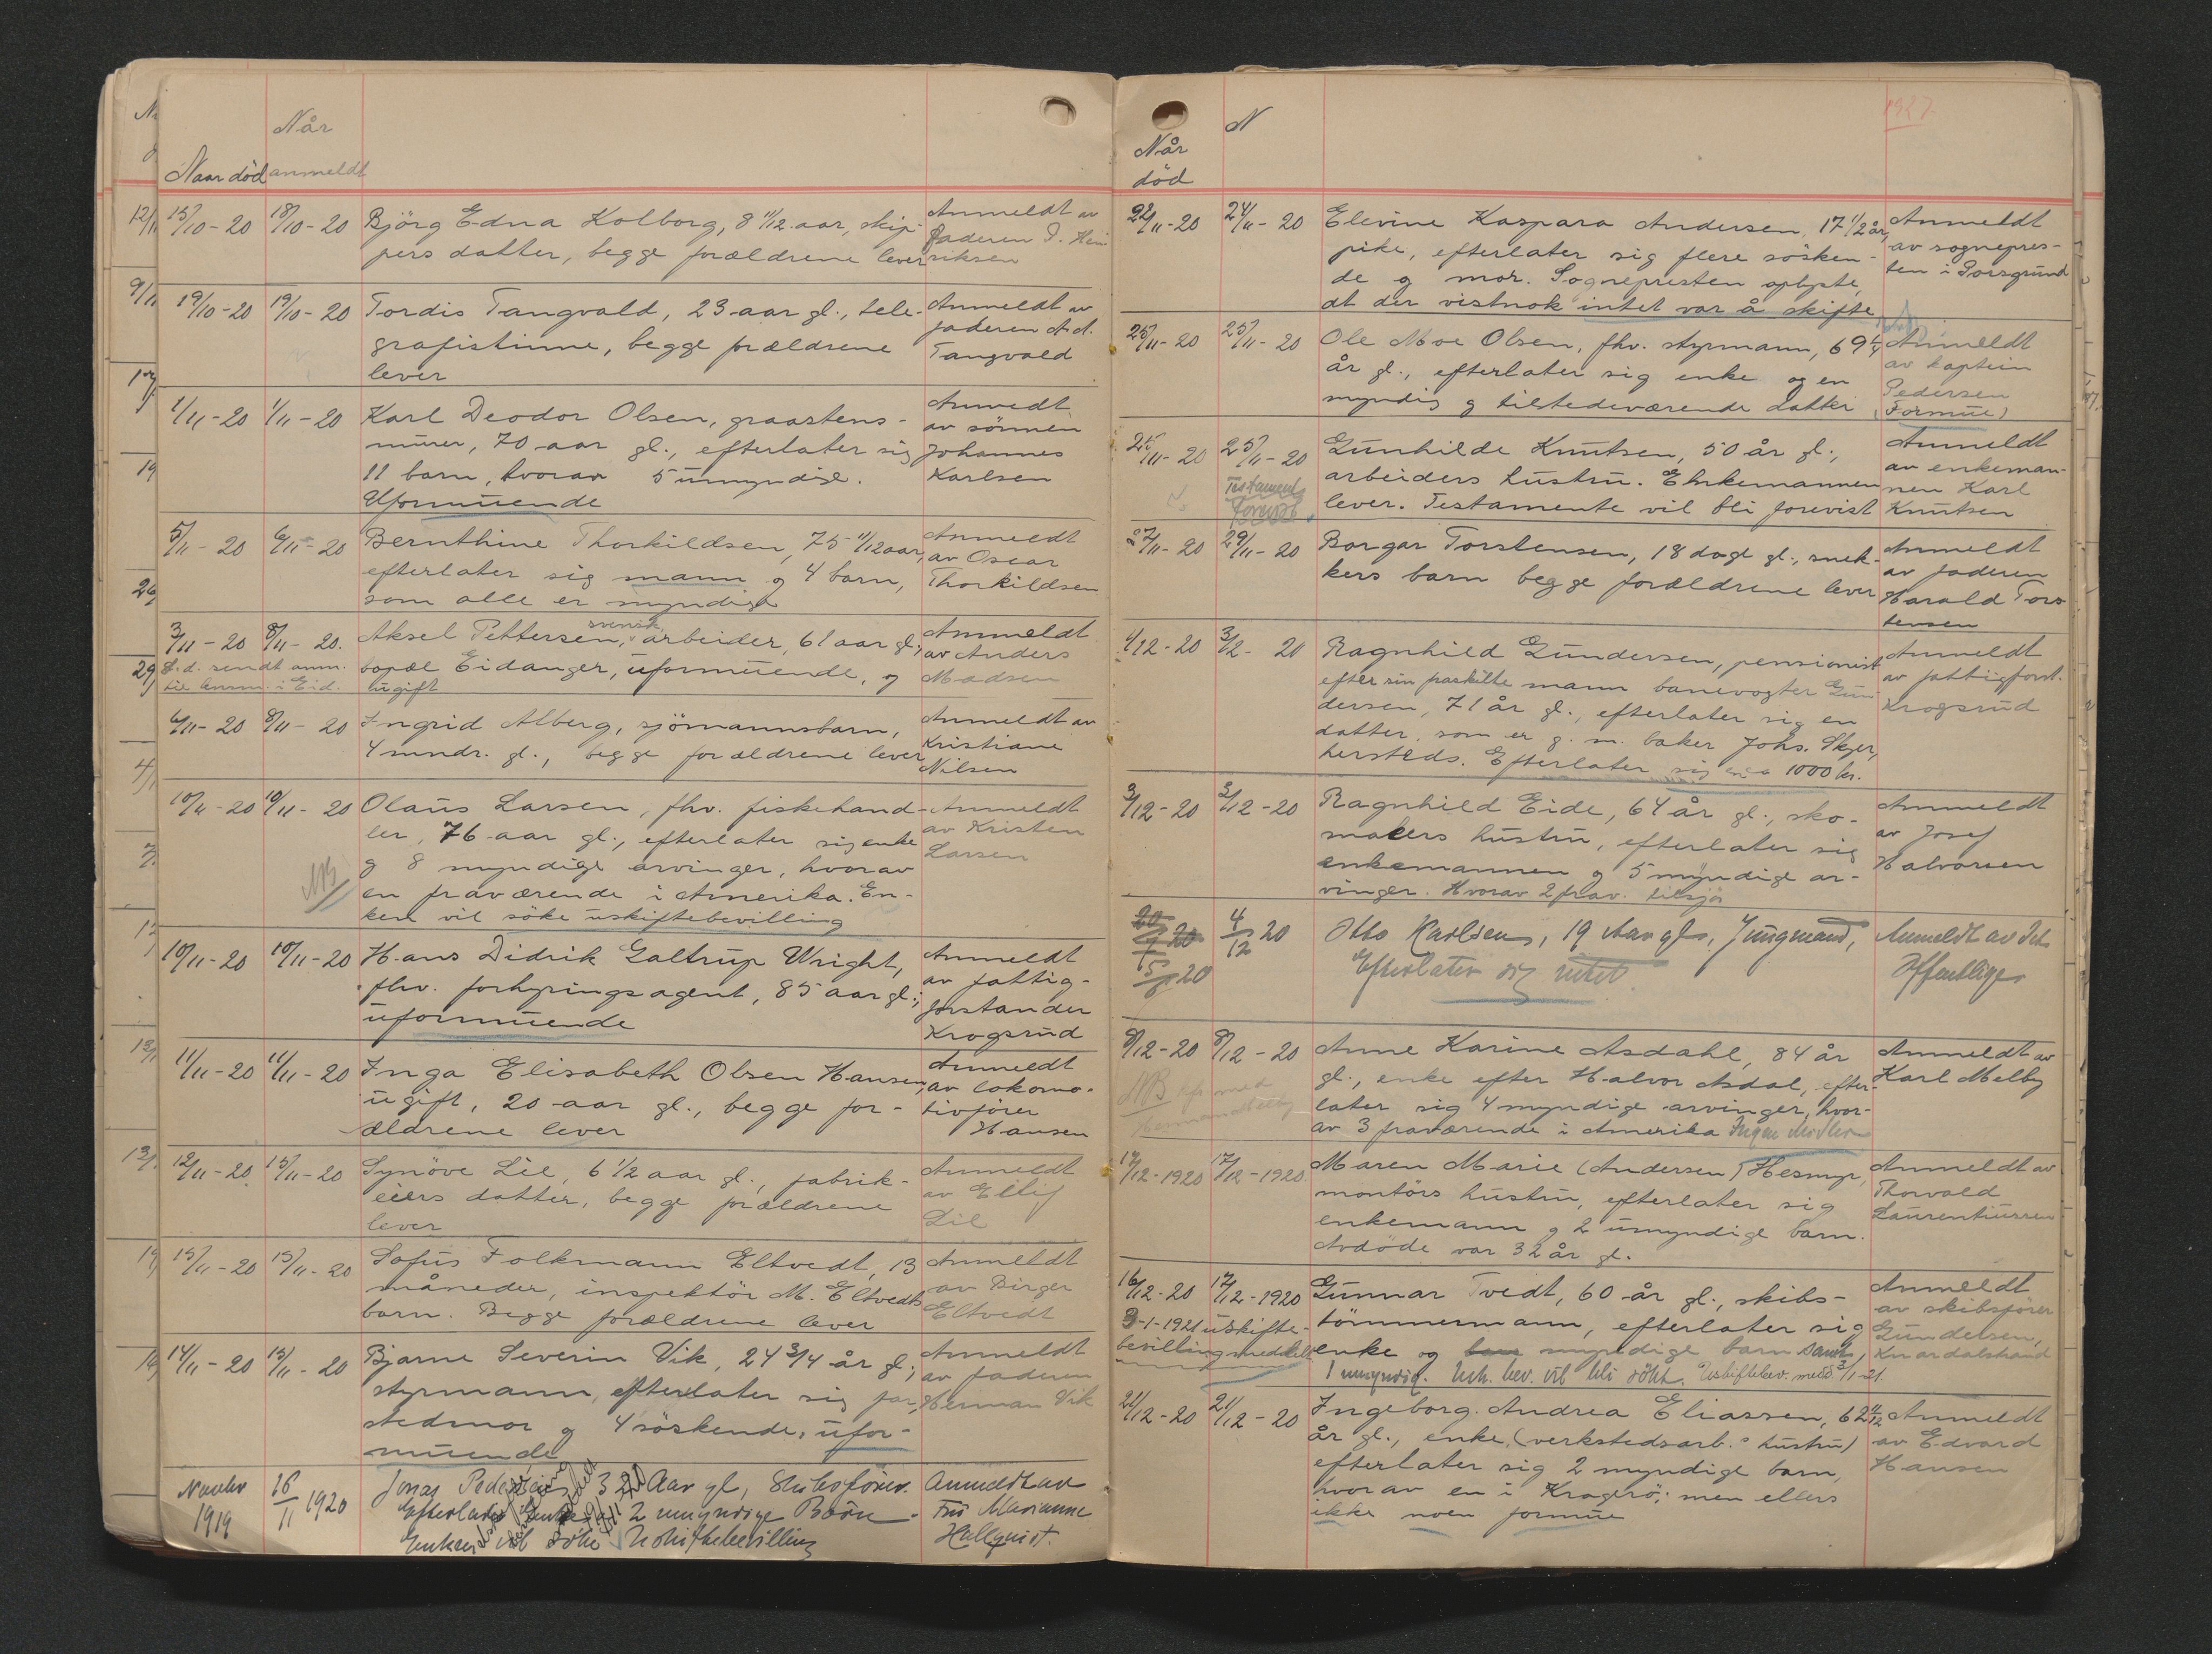 Når
Naar død anmeldt
15/10-20 18/10-20 Björg Edna Kolborg, 8 11/12 aar, skip- Anmeldt av
pers datter, begge forældrene lever faderen I. Hen
riksen
19/10-20 19/10-20 Tordis Tangvald, 23 aar gl., tele- Anmeldt av
grafistinne, begge forældrene faderen A. A.
lever Tangvald
1/11-20 1/11-20 Karl Deodor Olsen, graastens- Anmedt
murer, 70 aar gl., efterlater sig av sönnen
11 barn, hvorav 5 umyndige. Johannes
Uformuende Karlsen
5/11-20 6/11-20 Bernthine Thorkildsen, 75 11/12 aar, Anmeldt
efterlater sig mann og 4 barn, av Oscar
som alle er myndige Thorkildsen
3/11-20 8/11-20. Aksel Pettersen, svensk arbeider, 61 aar gl., Anmeldt
S.d. sendt anm. bopæl Eidanger, uformuende, og av Anders
til lensm. i Eid. ugift Madsen
6/11-20 8/11-20 Ingrid Alberg, sjömannsbarn, Anmeldt av
4 mndr. gl., begge forældrene lever Kristiane
Nilsen
10/11-20 10/11-20 Olaus Larsen, fhv. fiskehand- Anmeldt
ler, 76 aar gl., efterlater sig enke av Kristen
og 8 myndige arvinger, hvorav Larsen
NB en fraværende i Amerika. En-
ken vil söke uskiftebevilling
10/11-20 10/11-20 Hans Didrik Galtrup Wright, Anmeldt
fhv. forhyringsagent, 85 aar gl.; av fattig-
uformuende forstander
Krogsrud
11/11-20 11/11-20 Inga Elisabeth Olsen Hansen, Anmeldt
ugift, 20 aar gl., begge for- av lokomo-
ældrene lever tivförer
Hansen
12/11-20 15/11-20 Synöve Lie, 6 1/2 aar gl., fabrik- Anmeldt
eiers datter, begge forældrene av Ellif
lever Lie
15/11-20 15/11-20 Sofus Folkmann Eltvedt, 13 Anmeldt
måneder, inspektör M. Eltvedts av Birger
barn. Begge forældrene lever Eltvedt
14/11-20 15/11-20 Bjarne Severin Vik, 24 3/4 år gl., Anmeldt
styrmann, efterlater sig far, av faderen
stedmor og 4 söskende, ufor- Herman Vik
muende
Novbr 16/11 1920 Jonas Pedersen, 32 Aar gl, Skibsförer. Anmeldt av
1919 Efterlader Enke og 2 umyndige Börn. Fru Marianne
Enken vil söke Uskiftebevilling Hallquist.
Når N 1927
död
22/11-20 24/11-20 Elevine Kaspara Andersen, 17 1/2 år, Anmeldt
pike, efterlater sig flere sösken- av sognepres-
de og mor. Sognepresten oplyste, ten i Porsgrund
at der vistnok intet var å skifte
25/11-20 25/11-20 Ole Moe Olsen, fhv. styrmann, 69 1/4 Anmeldt
år gl., efterlater sig enke og en av kaptein
myndig og tilstedeværende datter Pedersen
(Formue)
25/11-20 25/11-20 Gunhilde Knutsen, 50 år gl., Anmeldt
Testament arbeiders hustru. Enkemannen av enkeman-
forevist lever. Testamente vil bli forevist nen Karl
Knutsen
27/11-20 29/11-20 Borgar Torstensen, 18 dage gl., snek- Anmeldt
kers barn begge forældrene lever av faderen
Harald Tors
tensen
1/12-20 3/12-20 Ragnhild Gundersen, pensionist Anmeldt
efter sin fraskilte mann banevogter Gun av fattigforst.
dersen, 71 år gl., efterlater sig en Krogsrud
datter, som er g. m. baker Johs. Skjer,
hersteds. Efterlater sig ca 1000 kr.
3/12-20 3/12-20 Ragnhild Eide, 64 år gl., sko- Anmeldt
makers hustru, efterlater sig av Josef
enkemannen og 5 myndige ar- Halvorsen
vinger. Hvorav 2 frav. tilsjös
20/7 20 4/12 20 Otto Karlsen, 19 Aar gl, Jungmand, Anmeldt av det
15/8 20 Efterlater sig intet. Offentlige
8/12-20 8/12-20 Anne Karine Asdahl, 84 år Anmeldt av
gl., enke efter Halvor Asdal, efter- Karl Melby
NB later sig 4 myndige arvinger, hvor-
av 3 fraværende i Amerika Ingen Midler
14/12-1920 17/12-1920. Maren Marie (Andersen) Hesmyr, Anmeldt av
montörs hustru, efterlater sig Thorvald
enkemann og 2 umyndige barn. Laurentiussen
Avdöde var 32 år gl.
16/12-20 17/12-1920 Gunnar Tvedt, 60 år gl., skibs- Anmeldt
3-1-1921 uskifte- tömmermann, efterlater sig av skibsförer
bevilling meddelt enke og myndige barn samt Gundersen,
1 umyndig. Usk. bev. vil bli sökt. Uskiftebev. medd. 3/1-21. Knardalstrand
21/12-20 21/12-20 Ingeborg Andrea Eliassen, 62 4/12 Anmeldt
år gl., enke, (verkstedsarb.s hustru) av Edvard
efterlater sig 2 myndige barn, Hansen
hvorav en i Kragerö; men ellers
ikke noen formue